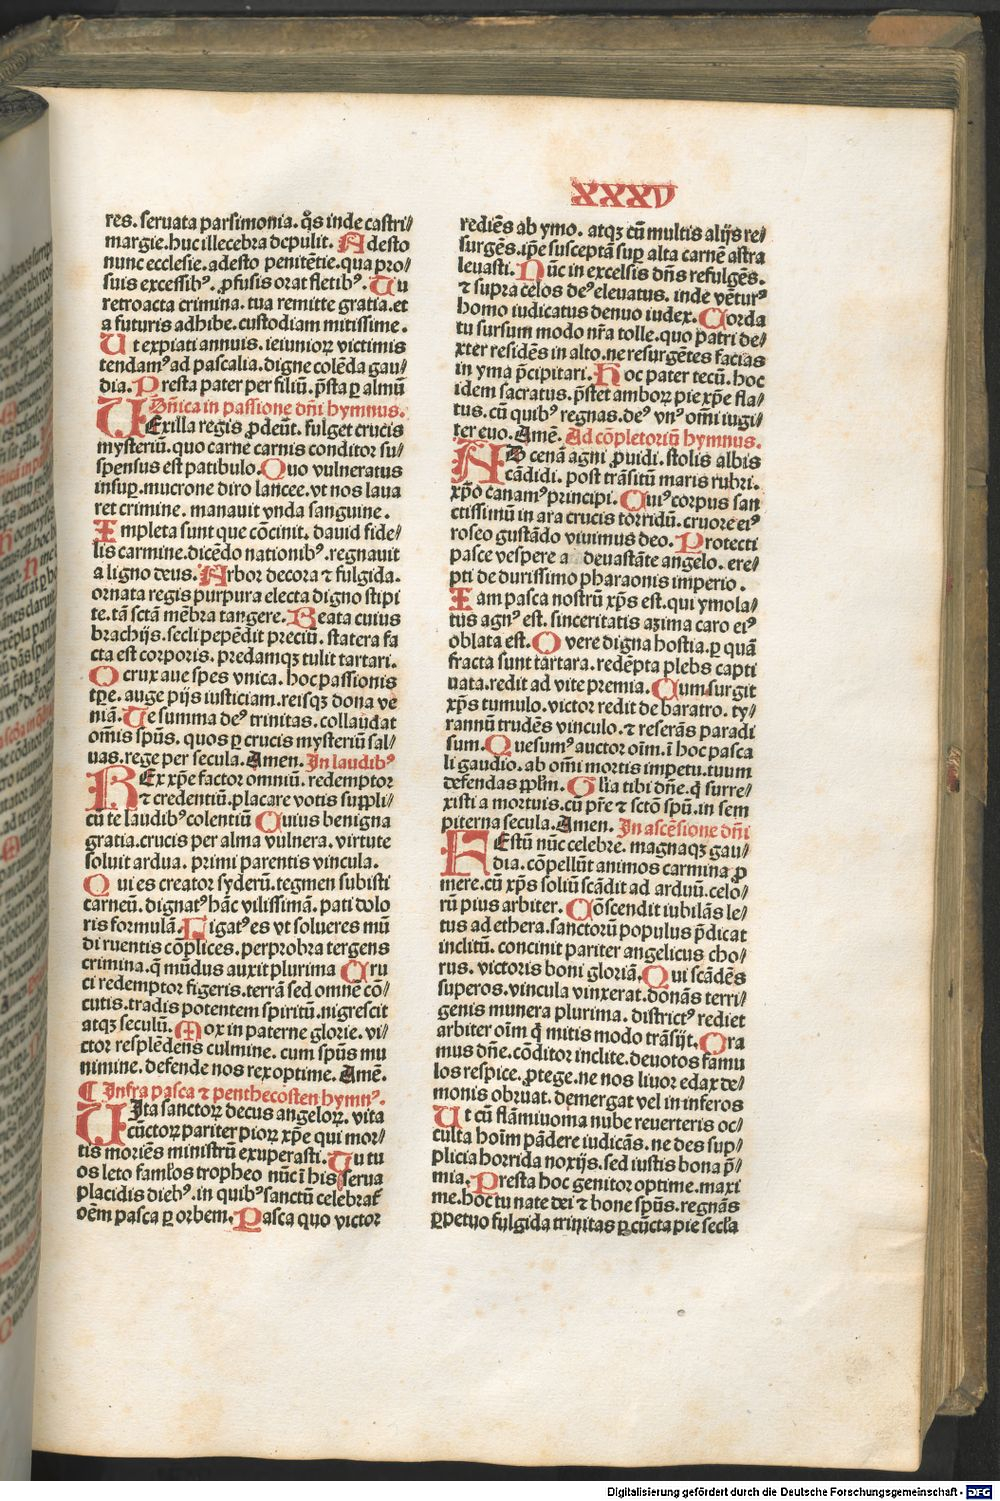 XXXV
res. seruata parsimonia. q̄s inde castri⸗
margie. huc illecebra depulit. Adesto
nunc ecclesie. adesto penitētie. qua pro⸗
suis excessibꝰ. ꝓfusis orat fletibꝰ. Tu
retroacta crimina. tua remitte gratia. et
a futuris adhibe. custodiam mitissime.
Ut expiati annuis. ieiunioꝝ victimis
tendamꝰ ad pascalia. digne colēda gau⸗
dia. Presta pater per filiū. p̄sta ꝑ almū
Dn̄ica in passione dn̄i hymnus.
VExilla regis ꝓdeūt. fulget crucis
mysteriū. quo carne carnis conditor su⸗
spensus est patibulo. Quo vulneratus
insuꝑ. mucrone diro lancee. vt nos laua
ret crimine. manauit vnda sanguine.
Impleta sunt que cōcinit. dauid fide⸗
lis carmine. dicēdo nationibꝰ. regnauit
a ligno deus. Arbor decora ⁊ fulgida.
ornata regis purpura electa digno stipi
te. tā sctā mēbra tangere. Beata cuius
brachijs. secli pepēdit preciū. statera fa
cta est corporis. predamqꝫ tulit tartari.
O crux aue spes vnica. hoc passionis
tꝑe. auge pijs iusticiam. reisqꝫ dona ve
niā. Te summa deꝰ trinitas. collaudat
om̄is spūs. quos ꝑ crucis mysteriū sal⸗
uas. rege per secula. Amen. In laudibꝰ
REx xp̄e factor omniū. redemptor
⁊ credentiū. placare votis suppli⸗
cū te laudibꝰ colentiū Cuius benigna
gratia. crucis per alma vulnera. virtute
soluit ardua. primi parentis vincula.
Qui es creator syderū. tegmen subisti
carneū. dignatꝰ hāc vilissimā. pati dolo
ris formulā. Ligatꝰ es vt solueres mū
di ruentis cōplices. per probra tergens
crimina. q̄ mūdus auxit plurima Cru
ci redemptor figeris. terrā sed omnē cō⸗
cutis. tradis potentem spiritū. nigrescit
atqꝫ seculū. Mox in paterne glorie. vi⸗
ctor resplēdens culmine. cum spūs mu
nimine. defende nos rex optime. Amē.
¶ Infra pasca ⁊ penthecosten hymnꝰ.
VIta sanctoꝝ decus angeloꝝ. vita
cūctoꝝ pariter pioꝝ xp̄e qui mor⸗
tis moriēs ministrū exuperasti. Tu tu
os leto famłos tropheo nūc ī his serua
placidis diebꝰ. in quibꝰ sanctū celebrat̄
oēm pasca ꝑ orbem. Pasca quo victor
rediēs ab ymo. atqꝫ cū multis alijs re⸗
surgēs. ip̄e susceptā suꝑ alta carnē astra
leuasti. Nūc in excelsis dn̄s refulgēs.
⁊ supra celos deꝰ eleuatus. inde vētur⸗
homo iudicatus denuo iudex. Corda
tu sursum modo nr̄a tolle. quo patri de⸗
xter residēs in alto. ne resurgētes facias
in yma p̄cipitari. Hoc pater tecū. hoc
idem sacratus. p̄stet amboꝝ pie xp̄e fla⸗
tus. cū quibꝰ regnas. deꝰ vnꝰ om̄i iugi⸗
ter euo. Amē. Ad cōpletoriū hymnus.
AD cenā agni ꝓuidi. stolis albis
cādidi. post trāsitū maris rubri.
xp̄o canamꝰ principi. Cuiꝰ corpus san
ctissimū in ara crucis torridū. cruore eiꝰ
roseo gustādo viuimus deo. Protecti
pasce vespere a deuastāte angelo. ere⸗
pti de durissimo pharaonis imperio.
Iam pasca nostrū xp̄s est. qui ymola⸗
tus agnꝰ est. sinceritatis azima caro eiꝰ
oblata est. O vere digna hostia. ꝑ quā
fracta sunt tartara. redēpta plebs capti
uata. redit ad vite premia. Cum surgit
xp̄s tumulo. victor redit de baratro. ty⸗
rannū trudēs vinculo. ⁊ reserās paradi
sum. Quesumꝰ auctor oīm. ī hoc pasca
li gaudio. ab om̄i mortis impetu. tuum
defendas pp̄lm. Glīa tibi dn̄e. q̄ surre⸗
xisti a mortuis. cū pr̄e ⁊ sctō spū. in sem
piterna secula. Amen. In ascēsione dn̄i
FEstū nūc celebre. magnaqꝫ gau⸗
dia. cōpellūt animos carmina ꝓ
mere. cū xp̄s soliū scādit ad arduū. celo⸗
rū pius arbiter. Cōscendit iubilās le⸗
tus ad ethera. sanctorū populus p̄dicat
inclitū. concinit pariter angelicus cho⸗
rus. victoris boni gloriā. Qui scādēs
superos. vincula vinxerat. donās terri⸗
genis munera plurima. districtꝰ rediet
arbiter oīm q̄ mitis modo trāsijt. Ora
mus dn̄e. cōditor inclite. deuotos famu
los respice. ꝓtege. ne nos liuor edax de⸗
monis obruat. demergat vel in inferos
Ut cū flāmiuoma nube reuerteris oc⸗
culta hoīm pādere iudicās. ne des sup⸗
plicia horrida noxijs. sed iustis bona p̄⸗
mia. Presta hoc genitor optime. maxi
me. hoc tu nate dei ⁊ bone spūs. regnās
ꝑpetuo fulgida trinitas ꝑ cūcta pie secła
Digitalisierung gefördert durch die Deutsche Forschungsgemeinschaft - DFG